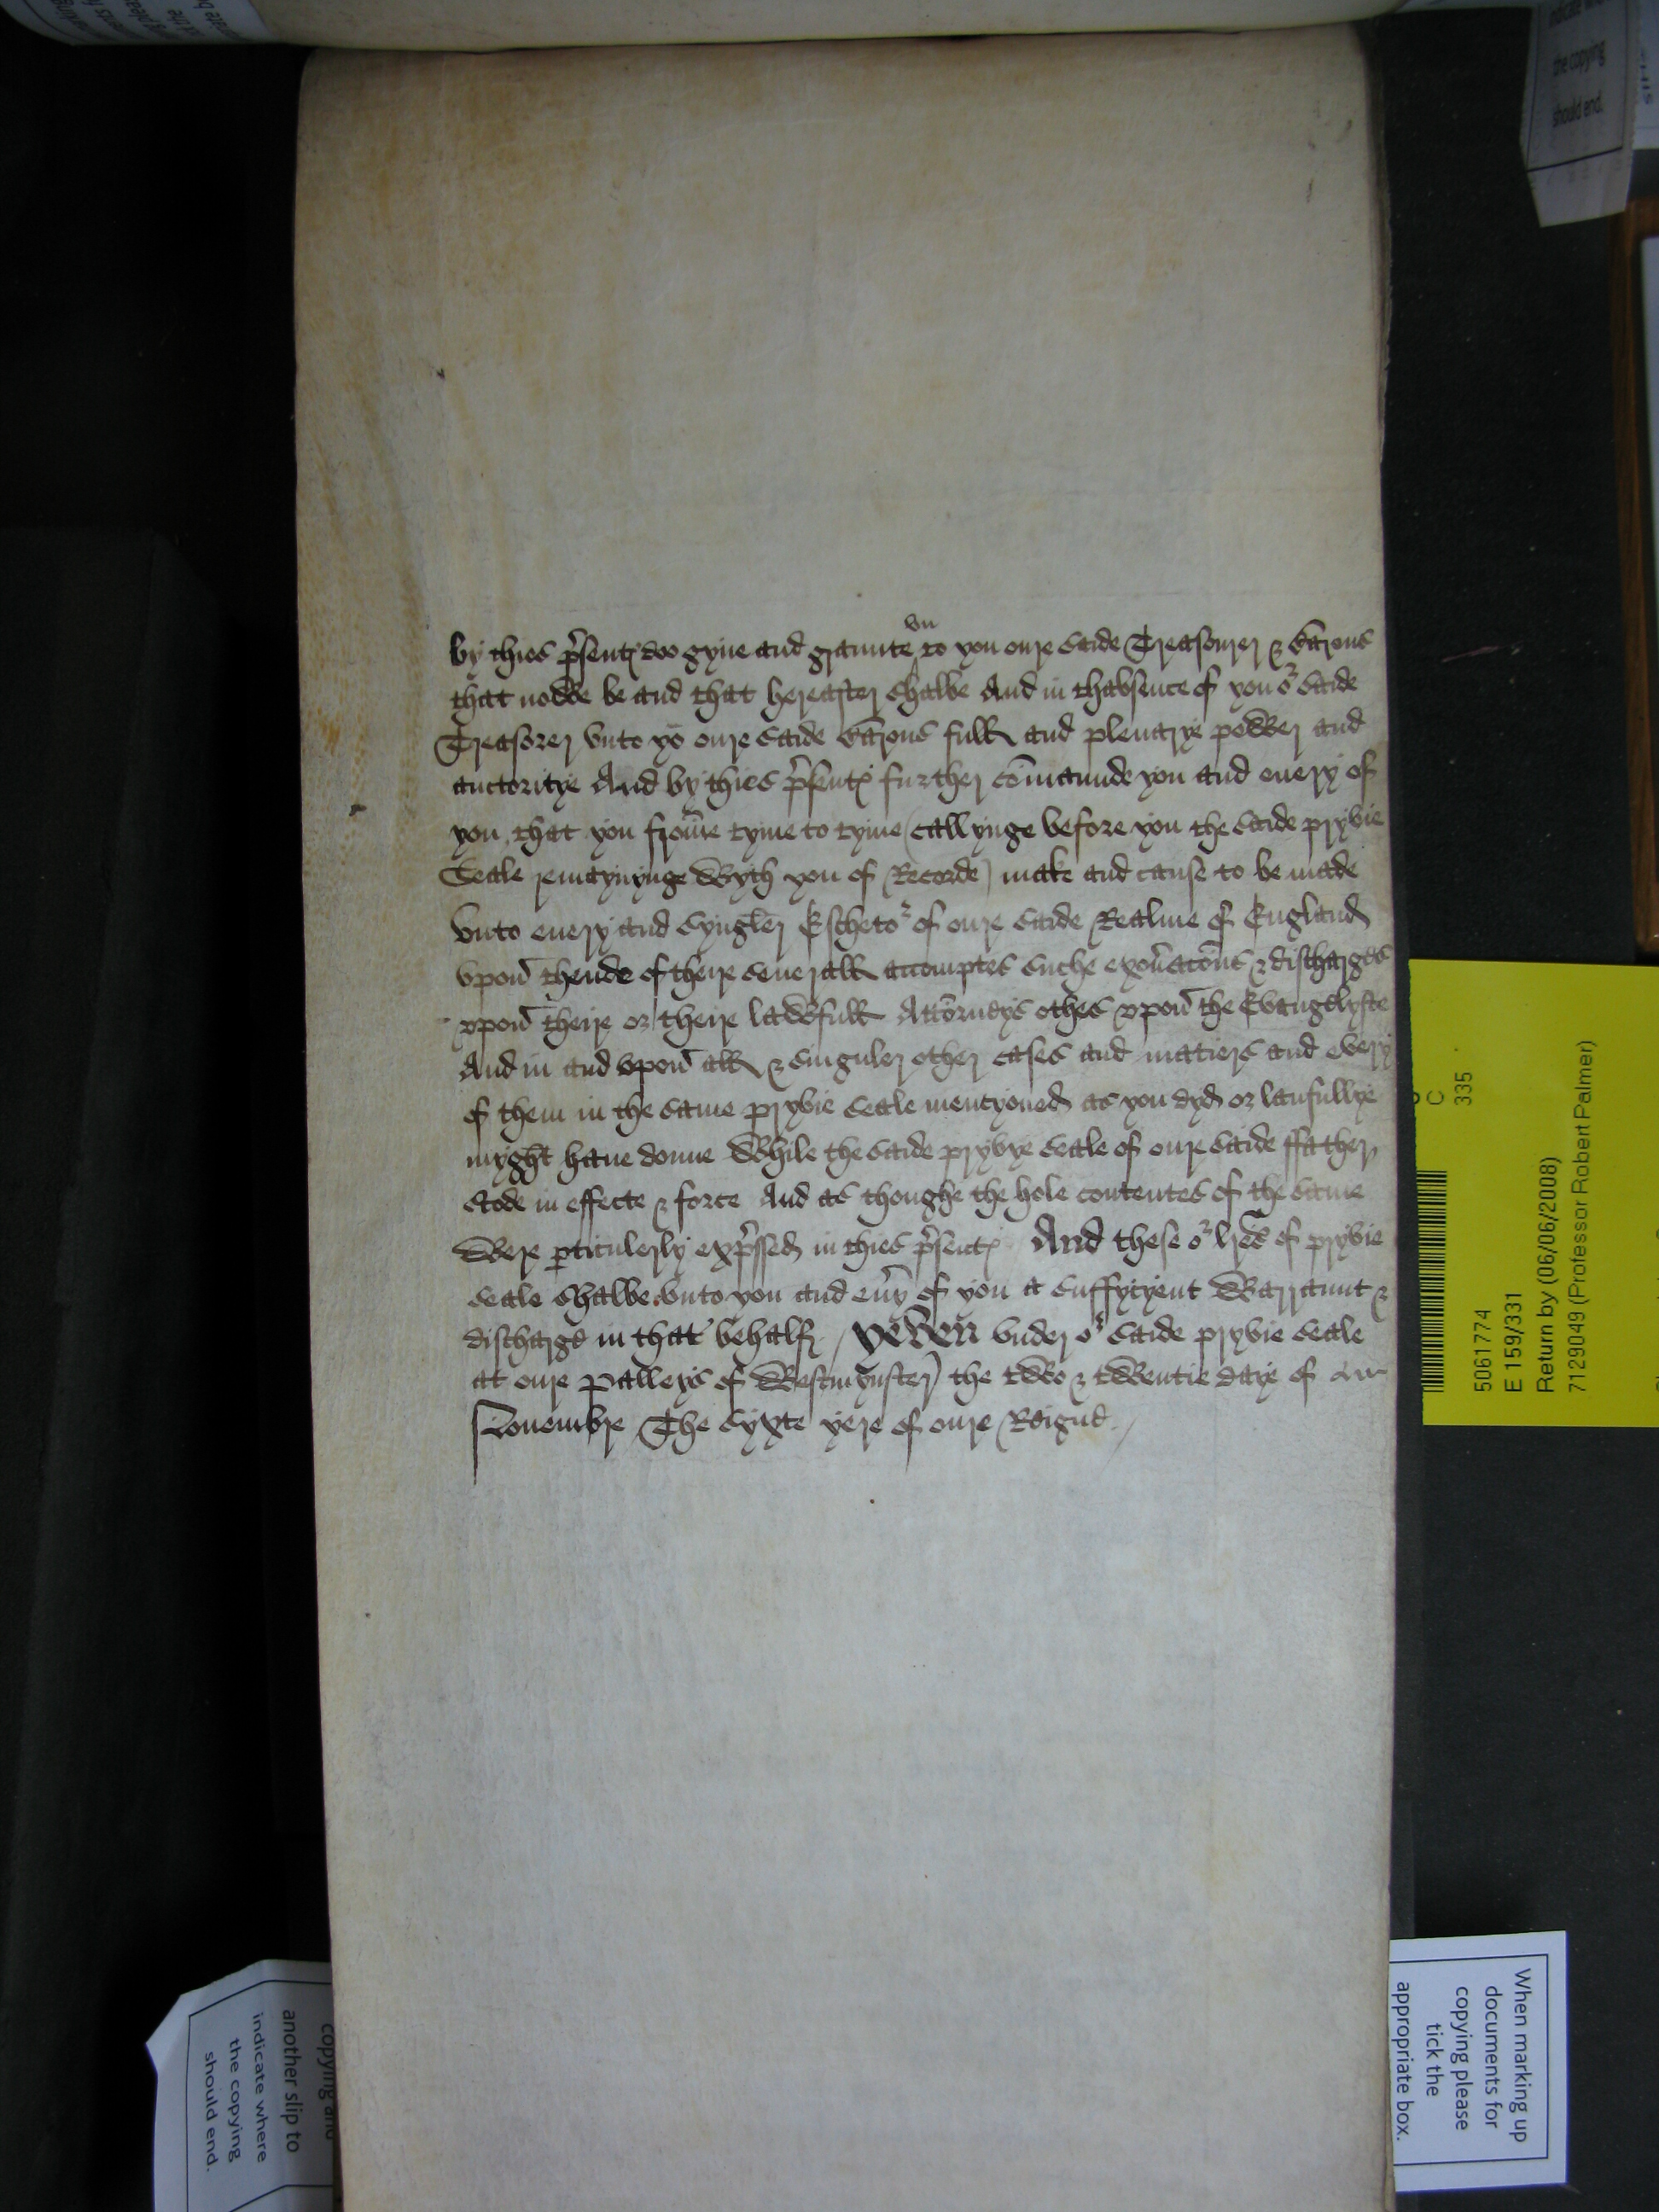 by thies p̃sentꝭ doo gyue and graunte ^vn to you oure saide Treasourer & barons
that nowe be and that hereafter shalbe And in thabsence of you oʳ saide
Treasorer vnto yō oure saide barons full and plenarye power and
auctoritye And by thies p̃sentꝭ further cōmaunde you and euery of
you, that you frome tyme to tyme (callynge before you the saide pryvie
Seale remaynynge wyth you of Recorde) make and cause to be made
vnto euery and synglēr Eschetoʳ of oure saide Realme of England
vpon thende of theire seuerall accomptes suche exoñacōns & discharges
vpon theire or theire lawfull Attorneys othes vpon the Evangelyste
And in and vpon all & singuler other cases and matiers and every
of them in the same pryvie seale mencyoned as you dyd or laufullye
myght haue donne While the saide pryvye seale of oure saide ffather
stode in effecte & force And as thoughe the hole contentes of the same
were ꝑticulerly exp̃ssed in thies p̃sentꝭ And these oʳ l̃res of pryvie
seale shalbe vnto you and eũy of you a suffycyent warraunt &
discharge in that behalf / yeven vnder oʳ saide pryvie seale
at oure Palleys of Westmynster the two & twentie daye of
Nouembre The syxte yere of oure Reigne /
the copying
should end.
335
5061774
E 159/331
Return by (06/06/2008)
7129049 (Professor Robert Palmer)
When marking up
documents for
copying please
tick the
appropriate box.
another slip to
indicate where
the copying
should end.